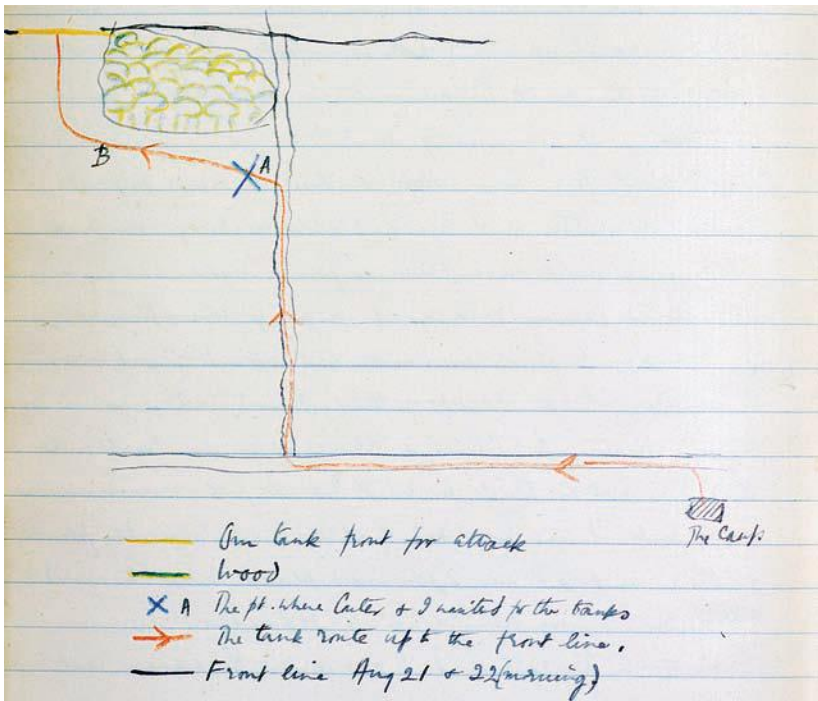 B
A
The Camp
Our tank front for attack
Wood
A The pt. where Carter & I waited for the tanks
The tank route up to the front line.
Front line Aug 21 & 22 (morning)